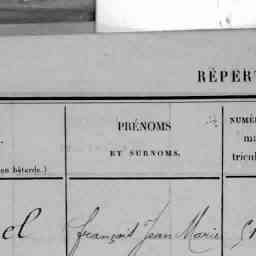 RÉPER
PRÉNOMS
ET SURNOMS.
NUMÉ
ma
tricul
en bâtarde.)
el
François Jean Marie